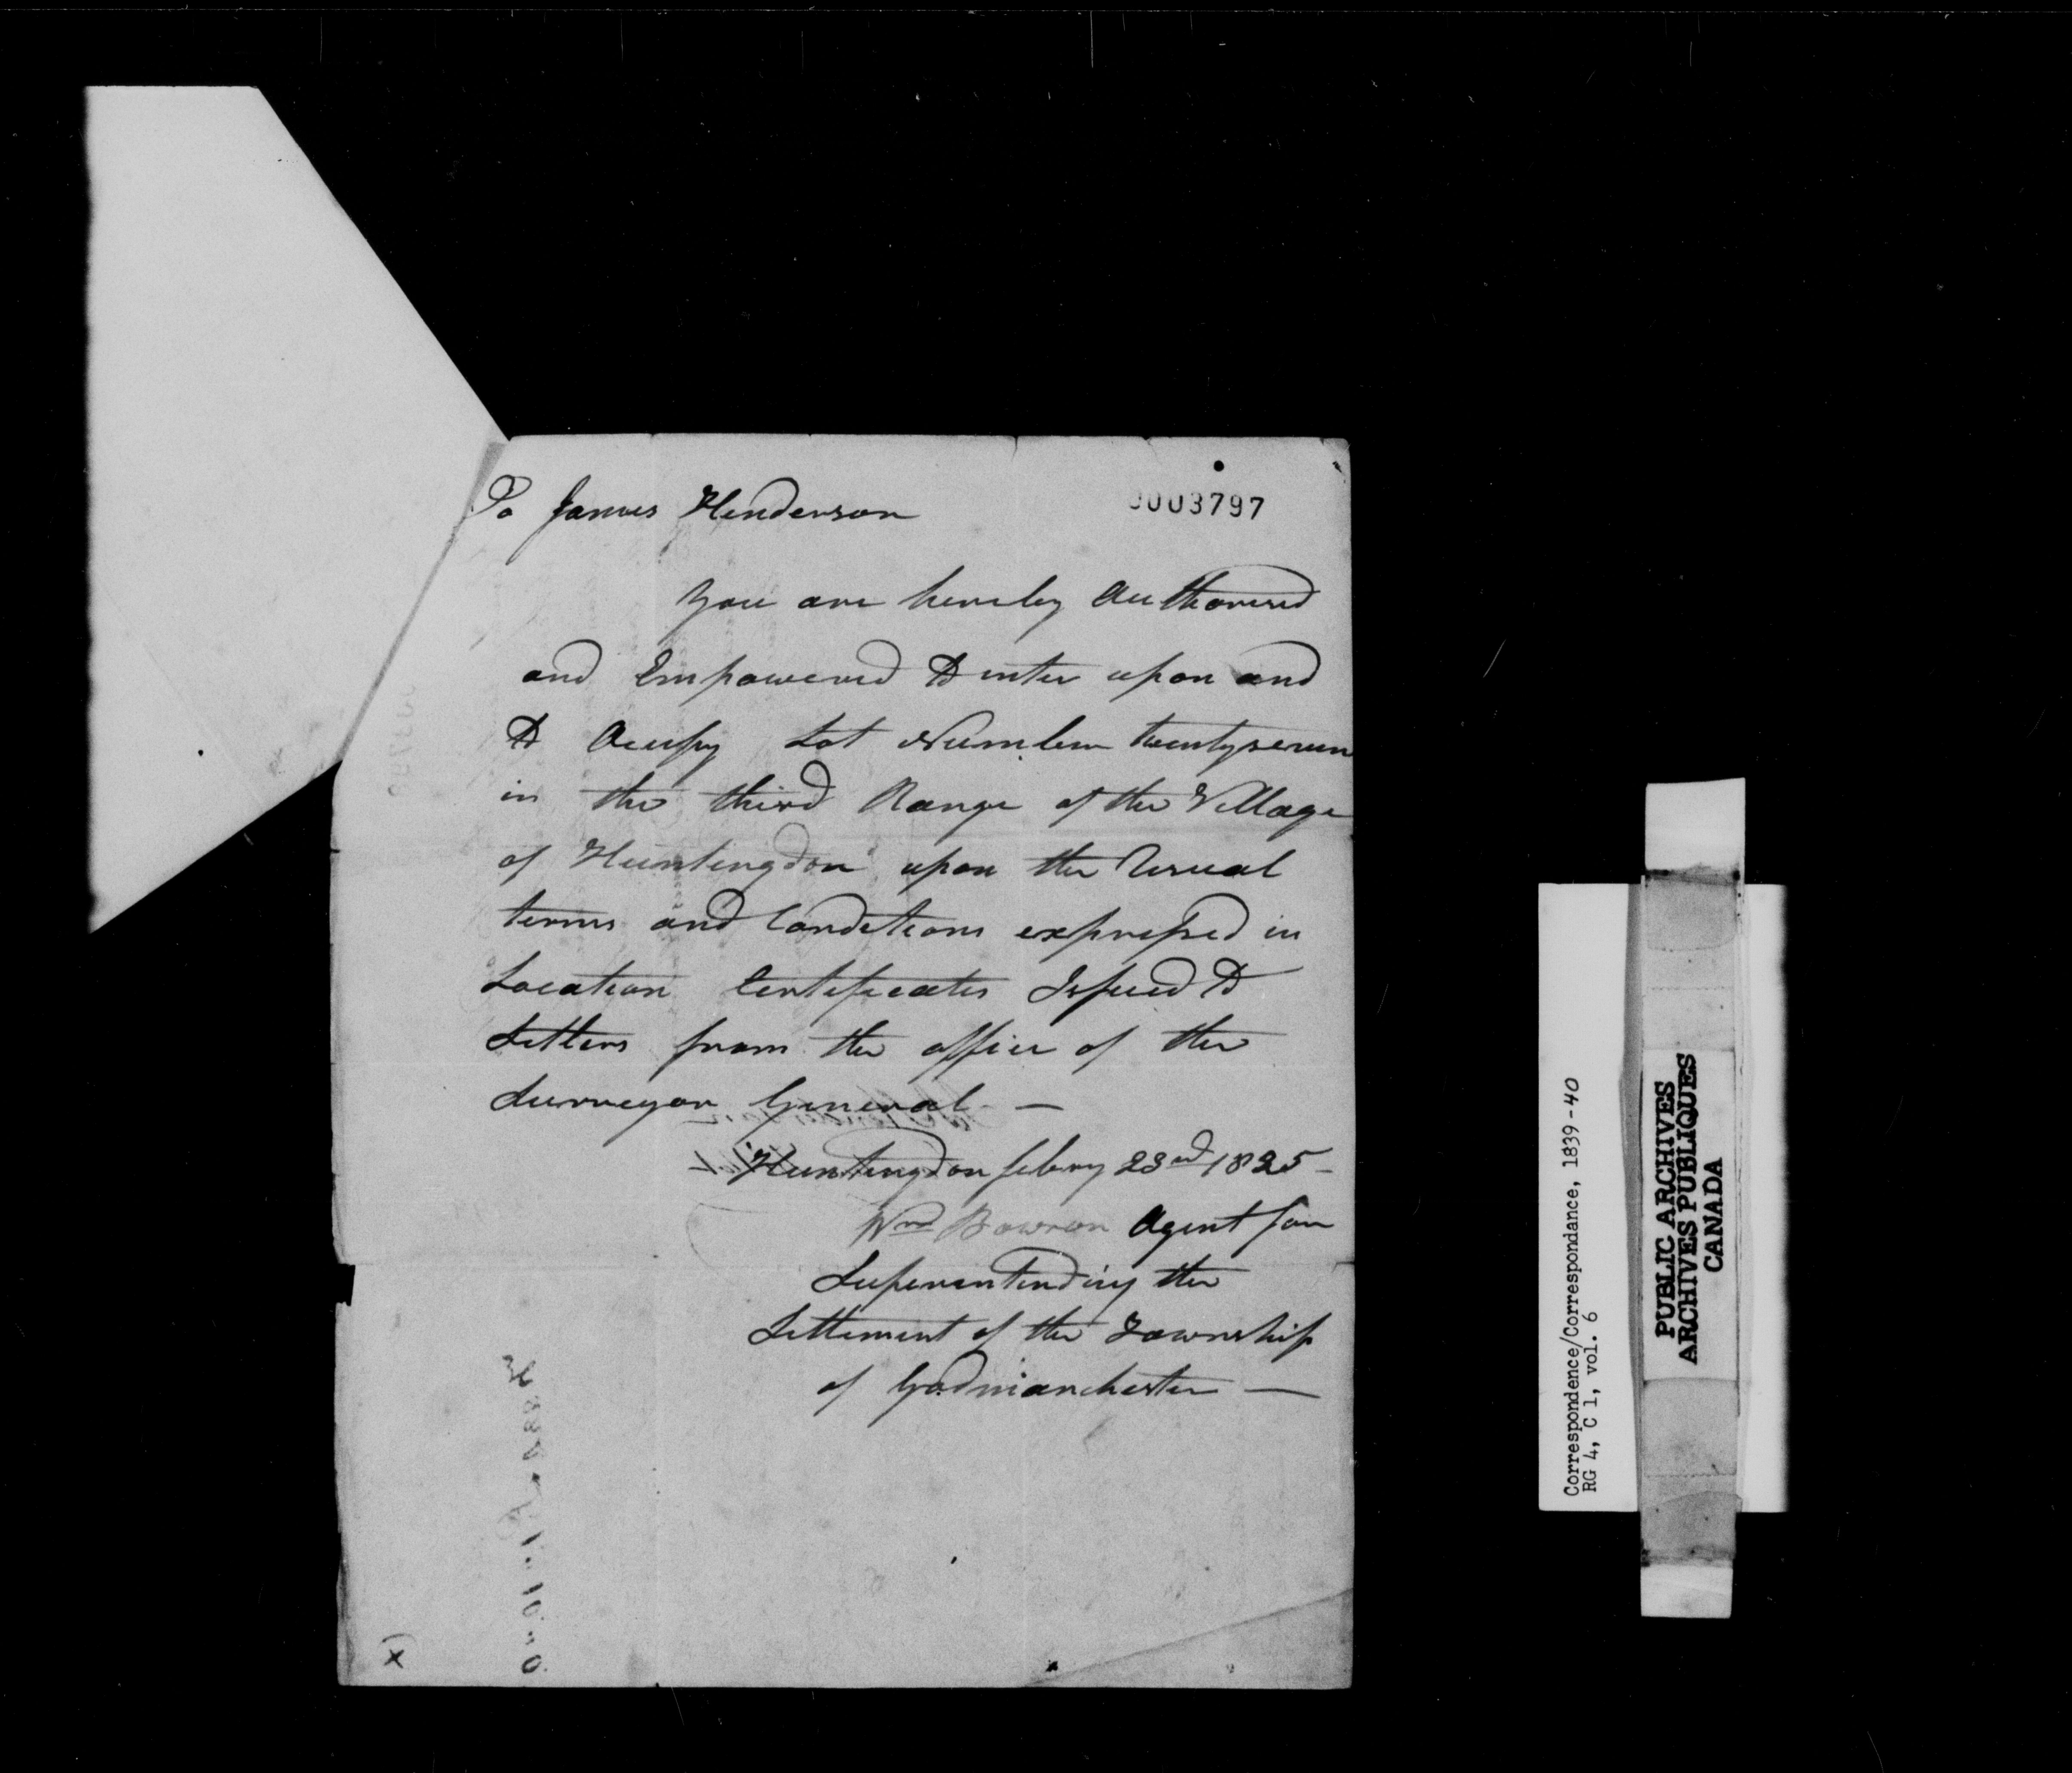 To James Henderson
0003797
You are hereby Authorised
and Empowered to enter upon and
to Occupy Lot Number twentyseven
in the third Range of the Village
of Huntingdon upon the Usual
terms and Conditions expressed in
Location Certificates Issued to
Settlers from the office of the
Surveyor General —
Huntingdon febry 23rd 1825 -
Wm Bowron Agent for
Superintending the
Settlement of the Township
of Godmanchester —
x
Correspondence/Correspondance, 1839-40
RG 4, C 1, vol. 6
PUBLIC ARCHIVES
ARCHIVES PUBLIQUES
CANADA